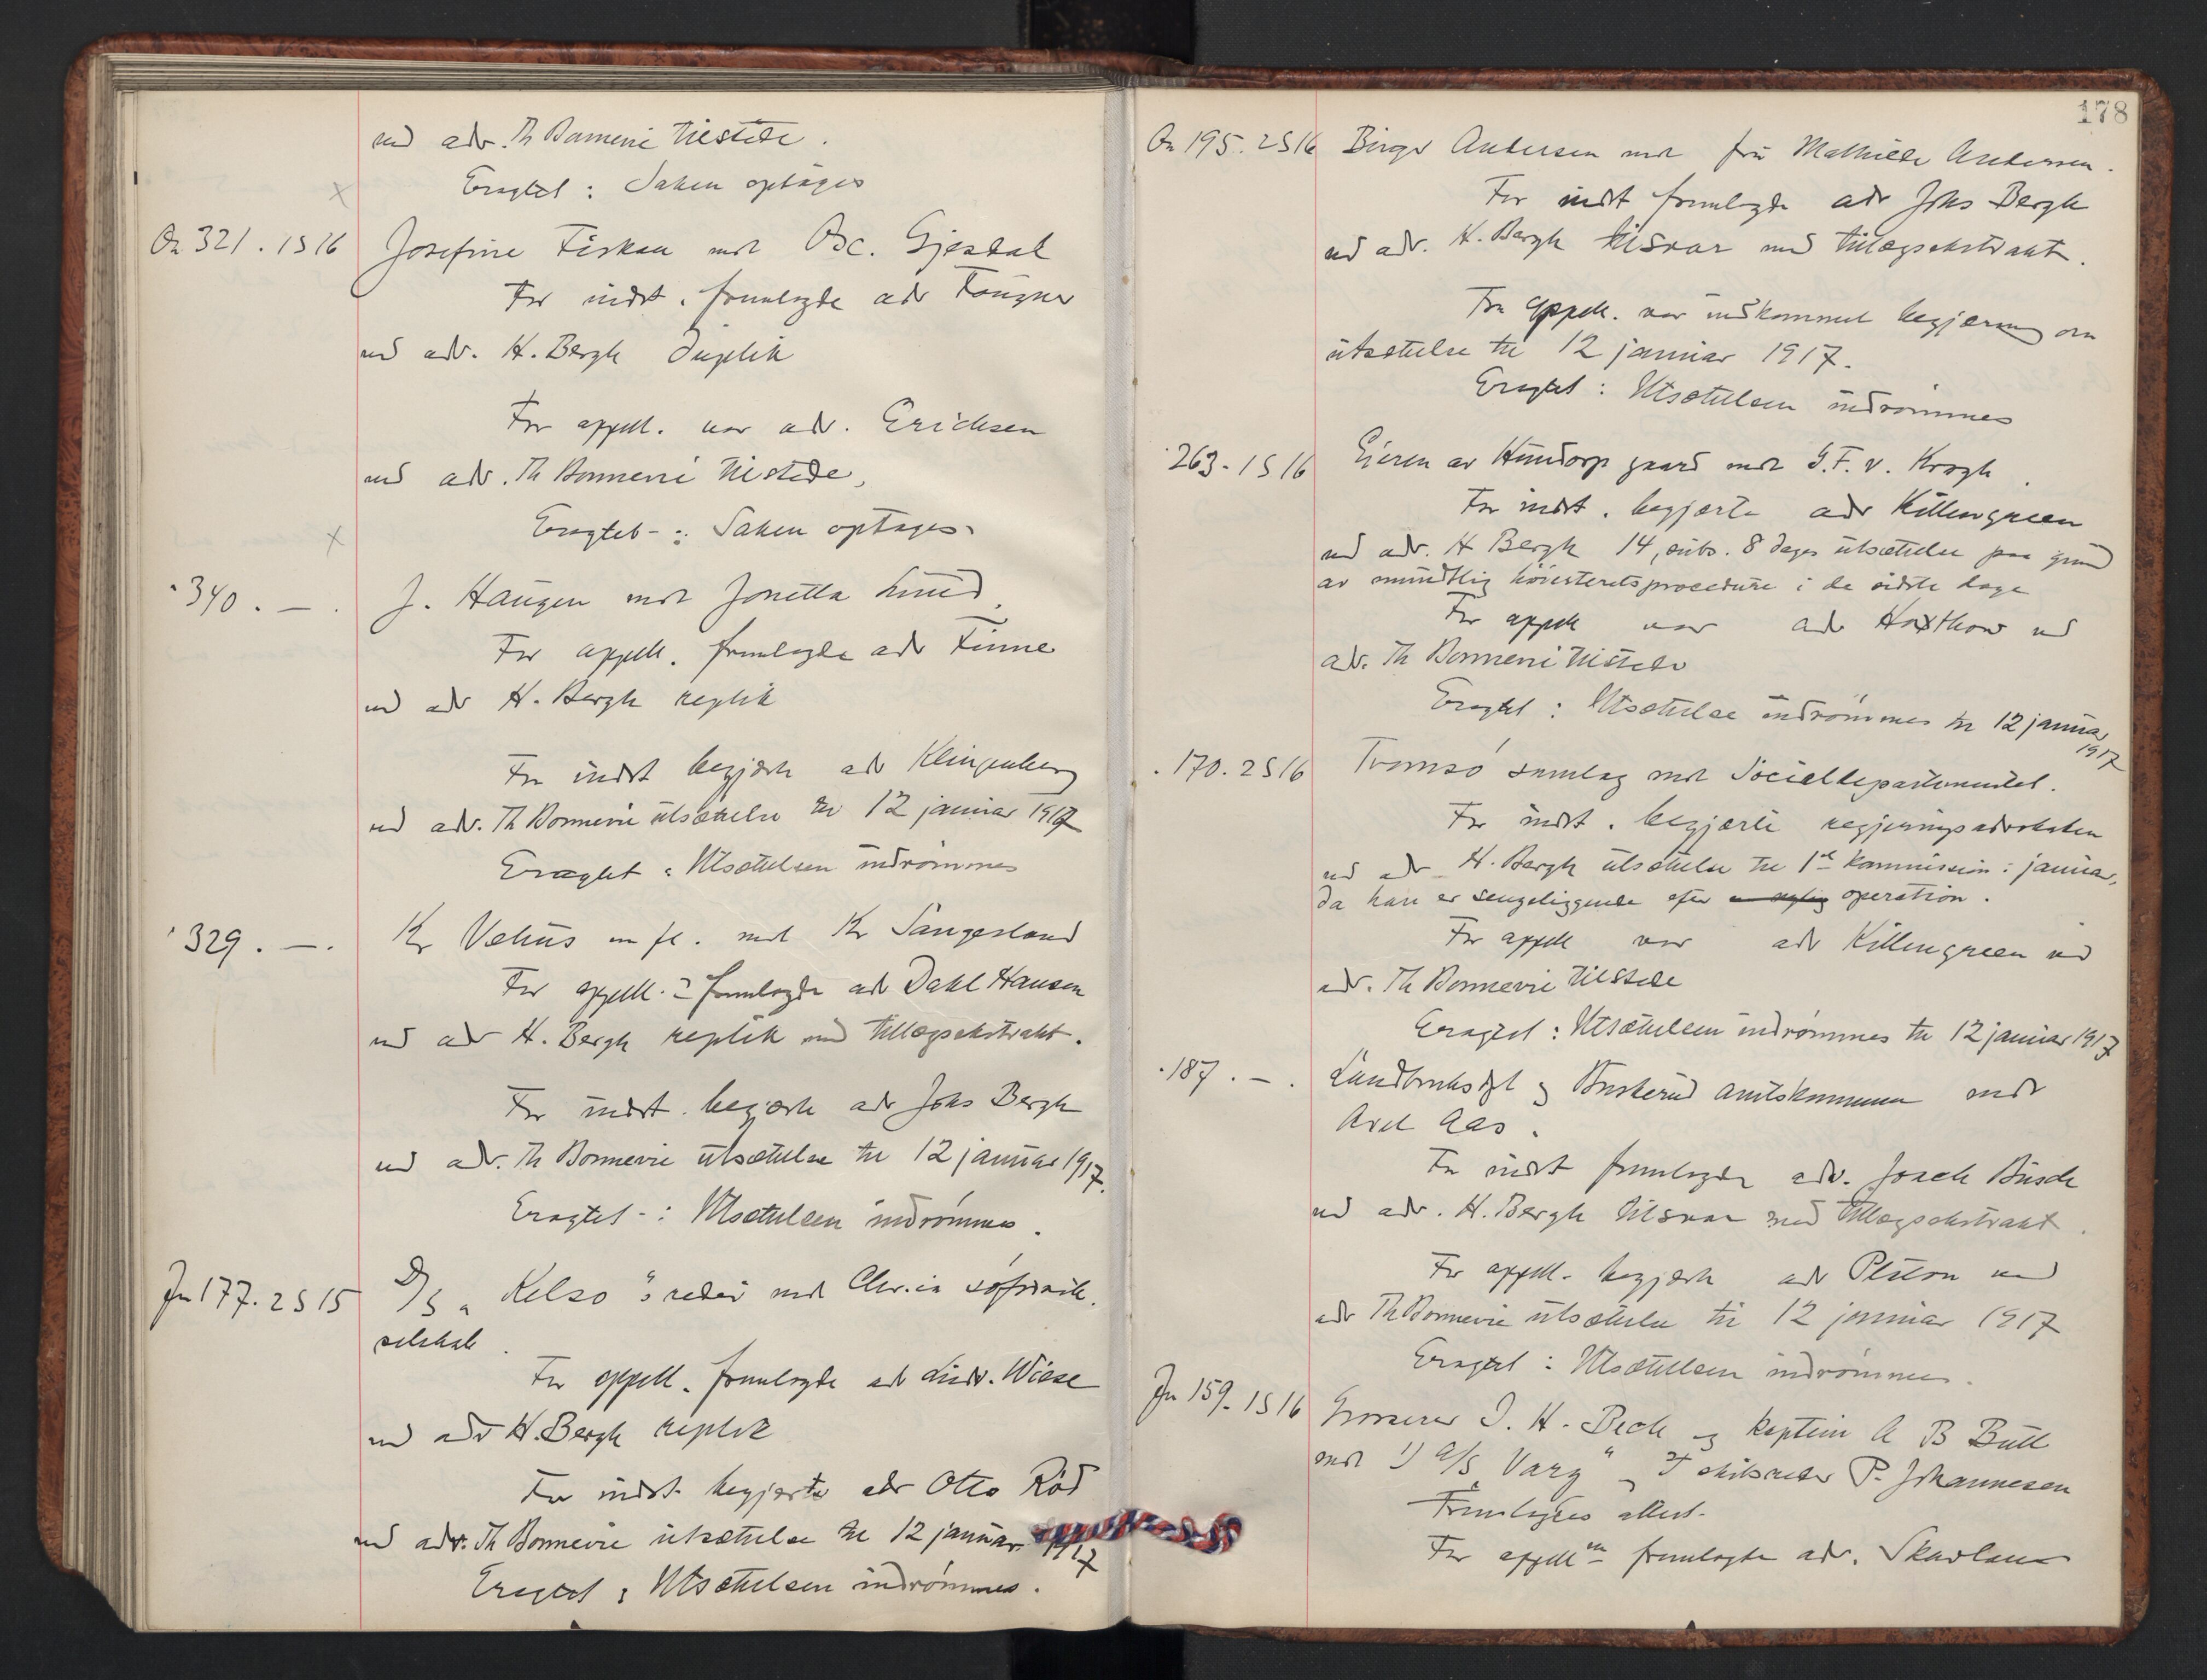 ved adv. Th Bonnevie tilstede.
Eragtet: Saken optages
X
On 321. 1S16 Josefine Fiskaa mot Osc. Gjesdal
For indst. fremlagde adv Fougner
ved adv. H. Bergh duplik
For appell. var adv. Erichsen
ved adv. Th Bonnevie tilstede,
Eragtet-: Saken optages.
X
340. — . J. Haugen mot Jonetta Lund.
For appell. fremlagde adv Finne
ved adv H. Bergh replik
For indst begjærte adv Klingenberg
ved adv. Th Bonnevie utsættelse til 12 januar 1917
Eragtet: Utsættelsen indrømmes
329. —. Kr Vehus m fl. mot Kr Sangesland
For appell. fremlagde adv Dahl Hansen
ved adv H. Bergh replik med tillægsekstrakt.
For indst. begjærte adv Johs Bergh
ved adv. Th Bonnevie utsættelse til 12 januar 1917.
Eragtet-: Utsættelsen indrømmes.
Jn 177. 2S15 D/S "Kelso"s rederi mot Chr.ia søforsik.
selskab.
For appell. fremlagde adv Ludv. Wiese
ved adv H. Bergh replik
For indst. begjærte adv Otto Rød
ved adv. Th Bonnevie utsættelse til 12 januar 1917
Eragtet: Utsættelsen indrømmes.
178
On 195. 2S16 Birger Andersen mot fru Mathilde Andersen.
For indst fremlagde adv Johs Bergh
ved adv. H. Bergh tilsvar med tillægsekstrakt.
Fra appell. var indkommet begjæring om
utsættelse til 12 januar 1917.
Eragtet: Utsættelsen indrømmes
263. 1S16 Eieren av Hundorp gaard mot G.F. v. Krogh.
For indst. begjærte adv Killengreen
ved adv. H Bergh 14, subs. 8 dages utsættelse paa grund
av mundtlig høiesteretsprocedure i de sidste dage
For appell var adv Hoxthow ved
adv. Th Bonnevie tilstede
Eragtet: Utsættelse indrømmes til 12 januar
1917
170. 2S16 Tromsø samlag mot Socialdepartementet.
For indst. begjærte regjeringsadvokaten
ved adv H. Bergh utsættelse til 1st kommission i januar,
da han er sengeliggende efter operation.
For appell var adv Killengreen ved
adv. Th Bonnevie tilstede
Eragtet: Utsættelsen indrømmes til 12 januar 1917
187. —. Landbruksdpt og Buskerud amtskommune mot
Axel Aas.
For indst fremlagde adv. Joach Busch
ved adv. H. Bergh tilsvar med tillægsekstrakt.
For appell. begjærte adv Platou ved
adv Th Bonnevie utsættelse til 12 januar 1917
Eragtet: Utsættelsen indrømmes.
Jn 159. 1S16 Grosserer I. H. Bech og kaptein A B Bull
mot 1) A/S "Varg" og 2) skibsreder P. Johannesen
Fremlagdes attest.
For appellne fremlagde adv. Skavlan